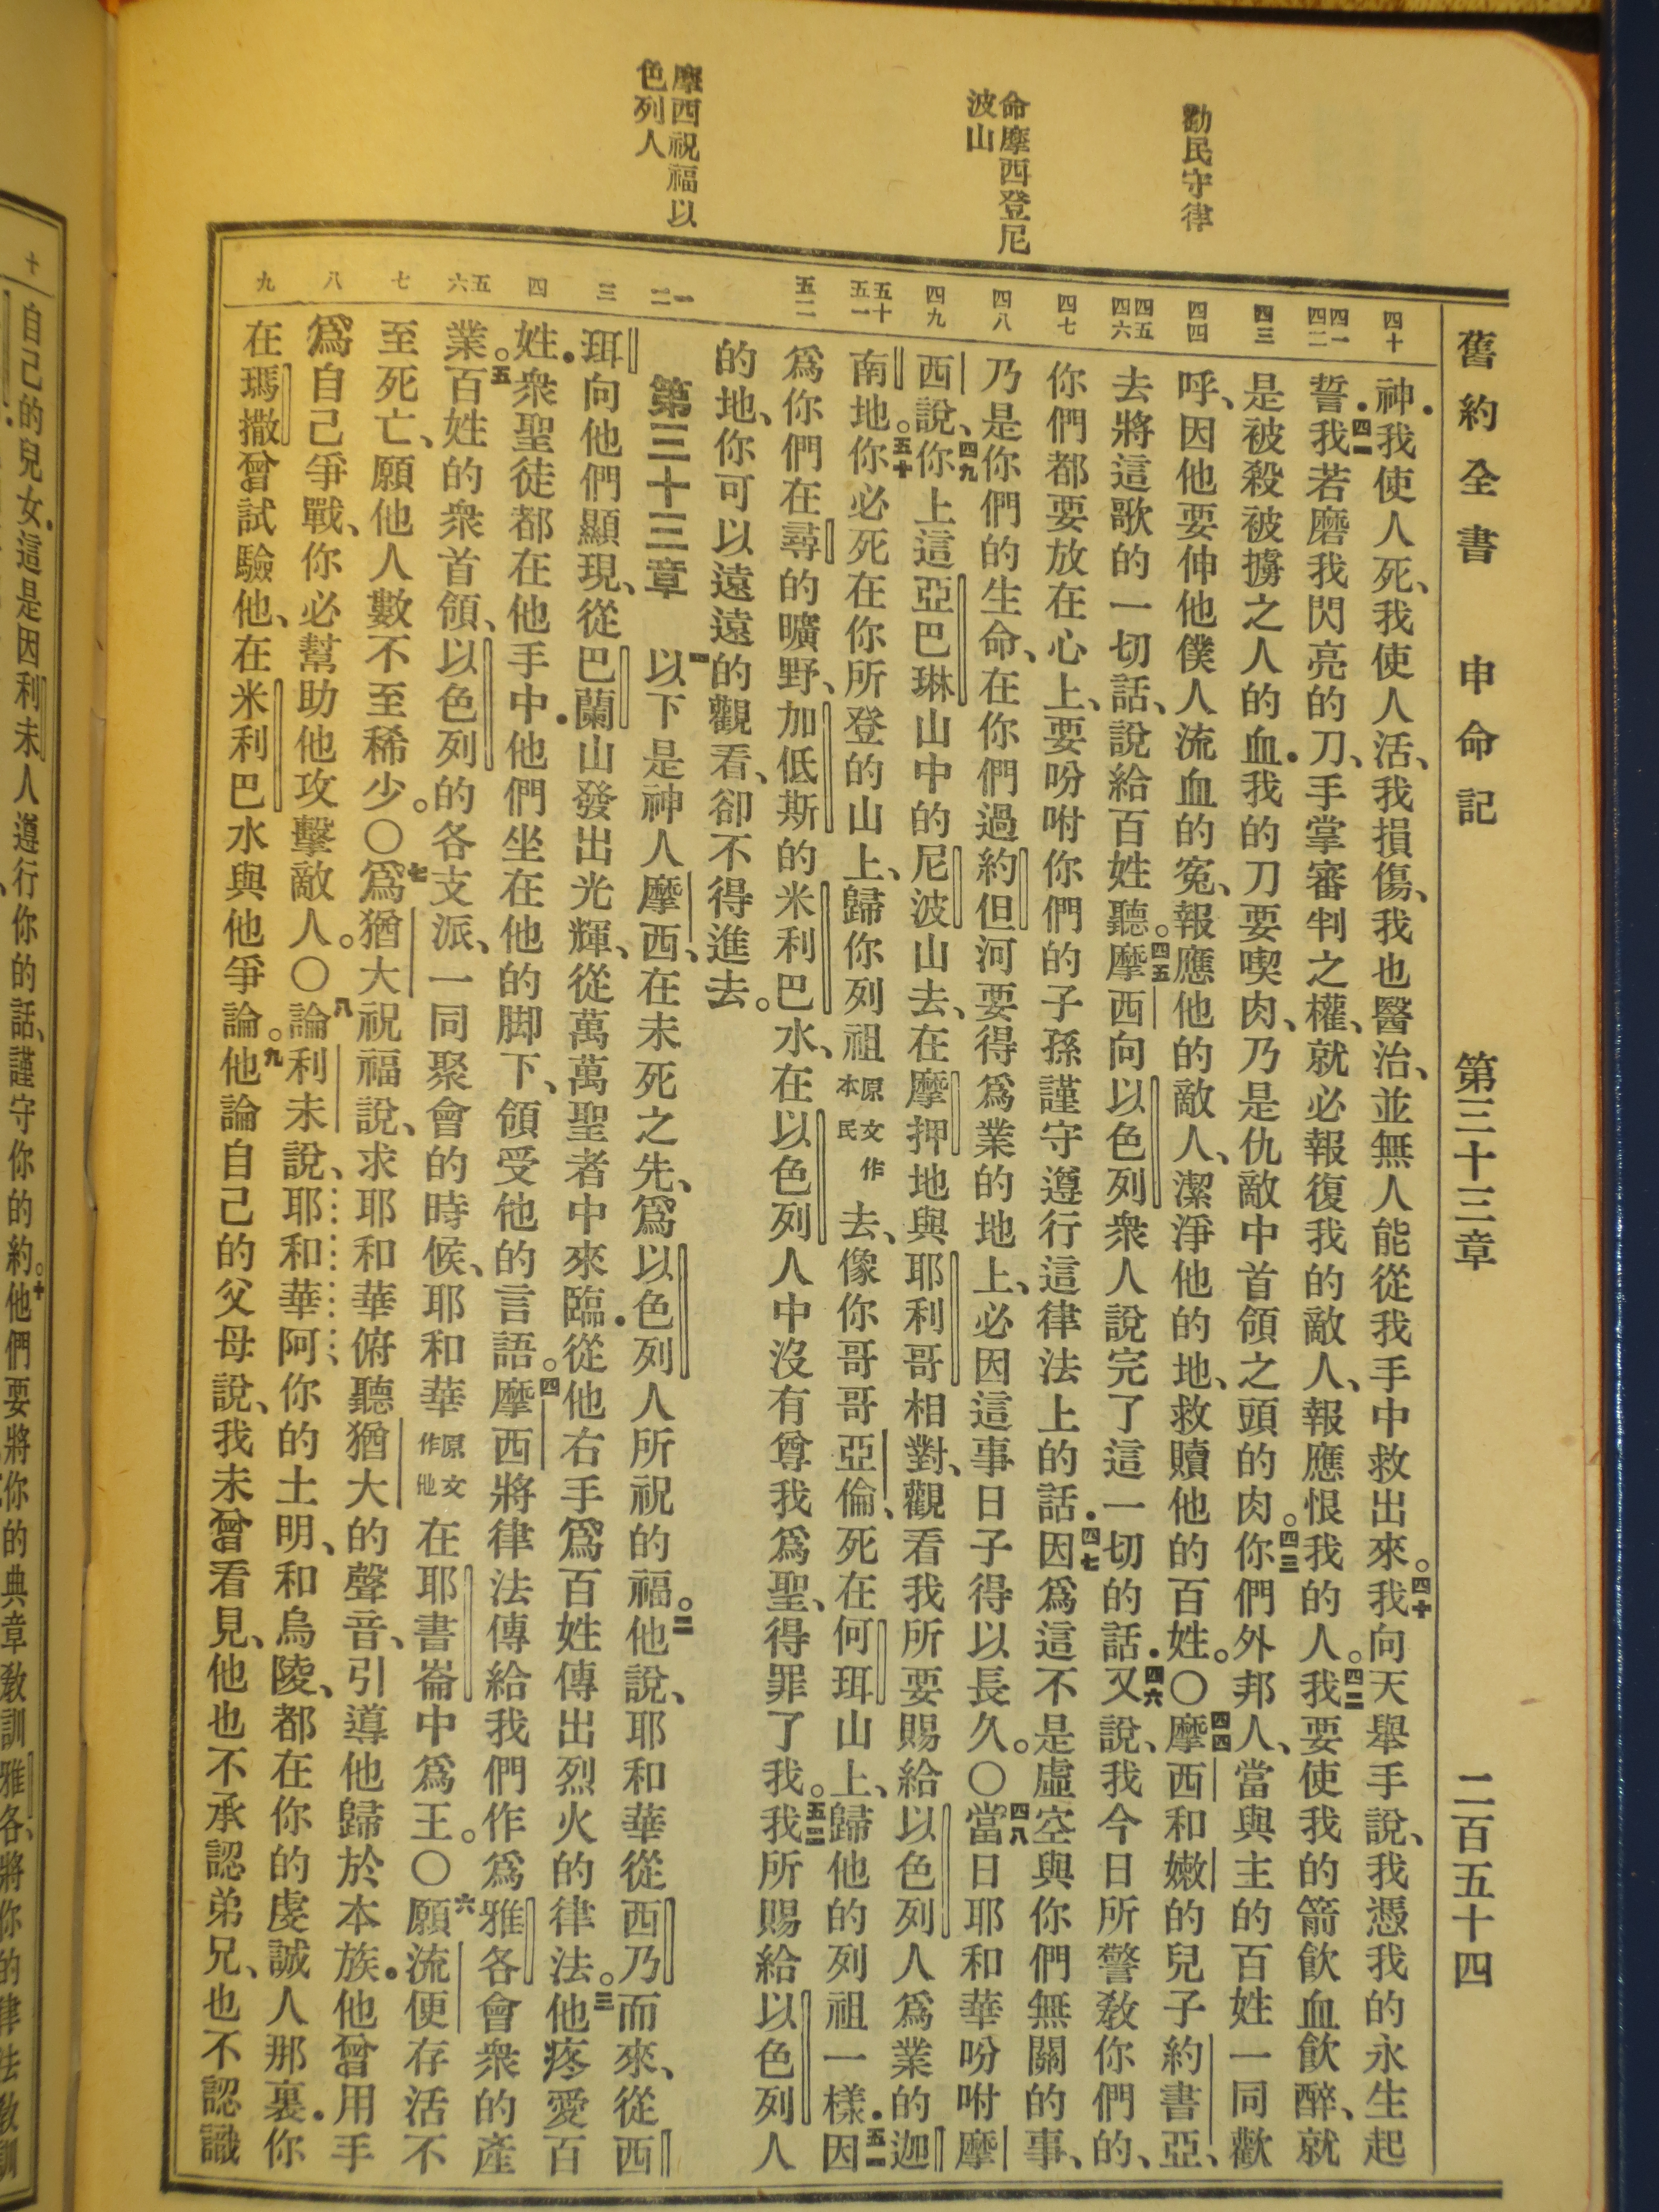 舊約全書 申命記 第三十三章 二百五十四
勸民守律
命摩西登尼
波山
摩西祝福以
色列人
四十
四一
四二
四三
四四
四五
四六
四七
四八
四九
五十
五一
五二
一
二
三
四
五
六
七
八
九
神．我使人死、我使人活、我損傷、我也醫治、並無人能從我手中救出來。四十我向天舉手說、我憑我的永生起
誓．四一我若磨我閃亮的刀、手掌審判之權、就必報復我的敵人、報應恨我的人。四二我要使我的箭飲血飲醉、就
是被殺被擄之人的血．我的刀要喫肉、乃是仇敵中首領之頭的肉。四三你們外邦人、當與主的百姓一同歡
呼、因他要伸他僕人流血的冤、報應他的敵人、潔淨他的地、救贖他的百姓。〇四四摩西和嫩的兒子約書亞、
去將這歌的一切話、說給百姓聽。四五摩西向以色列衆人說完了這一切的話．四六又說、我今日所警敎你們的、
你們都要放在心上、要吩咐你們的子孫謹守遵行這律法上的話．四七因爲這不是虛空與你們無關的事、
乃是你們的生命、在你們過約但河要得爲業的地上、必因這事日子得以長久。〇四八當日耶和華吩咐摩
西說、四九你上這亞巴琳山中的尼波山去、在摩押地與耶利哥相對、觀看我所要賜給以色列人爲業的迦
南地。五十你必死在你所登的山上、歸你列祖原文作本民去、像你哥哥亞倫、死在何珥山上、歸他的列祖一樣．五一因
爲你們在尋的曠野、加低斯的米利巴水、在以色列人中沒有尊我爲聖、得罪了我。五二我所賜給以色列人
的地、你可以遠遠的觀看、卻不得進去。
第三十三章 一以下是神人摩西、在未死之先、爲以色列人所祝的福。二他說、耶和華從西乃而來、從西
珥向他們顯現、從巴蘭山發出光輝、從萬萬聖者中來臨．從他右手爲百姓傳出烈火的律法。三他疼愛百
姓．衆聖徒都在他手中．他們坐在他的脚下、領受他的言語。四摩西將律法傳給我們作爲雅各會衆的產
業。五百姓的衆首領、以色列的各支派、一同聚會的時候、耶和華原文作他在耶書崙中爲王。〇六願流便存活不
至死亡、願他人數不至稀少。〇七爲猶大祝福說、求耶和華俯聽猶大的聲音、引導他歸於本族．他曾用手
爲自己爭戰、你必幫助他攻擊敵人。〇八論利未說、耶和華阿、你的土明、和烏陵、都在你的虔誠人那裏．你
在瑪撒曾試驗他、在米利巴水與他爭論。九他論自己的父母說、我未曾看見、他也不承認弟兄、也不認識
十
自己的兒女．這是因利未人遵行你的話、謹守你的約。十他們要將你的典章敎訓雅各、將你的律法敎訓